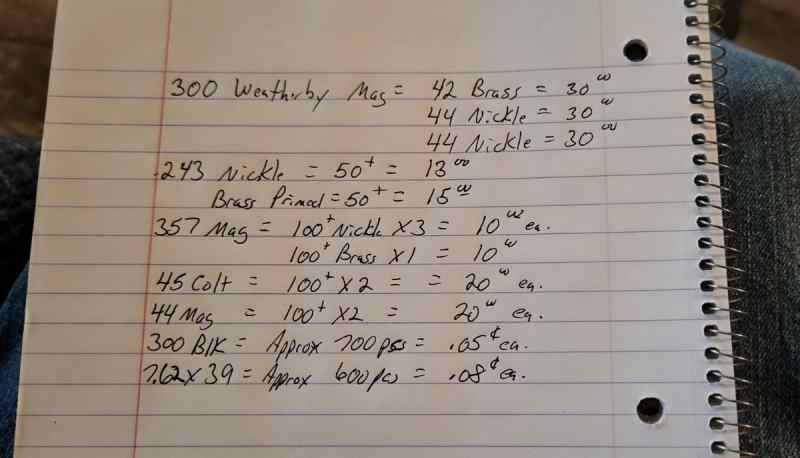 300 Weatherby Mag = 42 Brass = 30⁰⁰
44 Nickle = 30⁰⁰
44 Nickle = 30⁰⁰
.243 Nickle = 50⁺ = 13⁰⁰
Brass Primed = 50⁺ = 15⁰⁰
357 Mag = 100⁺ Nickle X3 = 10⁰⁰ ea.
100⁺ Brass X1 = 10⁰⁰
45 Colt = 100⁺ X2 = = 20⁰⁰ ea.
44 Mag = 100⁺ X2 = 20⁰⁰ ea.
300 Blk = Approx 700 pcs = .05¢ ea.
7.62 x 39 = Approx 600 pcs = .08¢ ea.